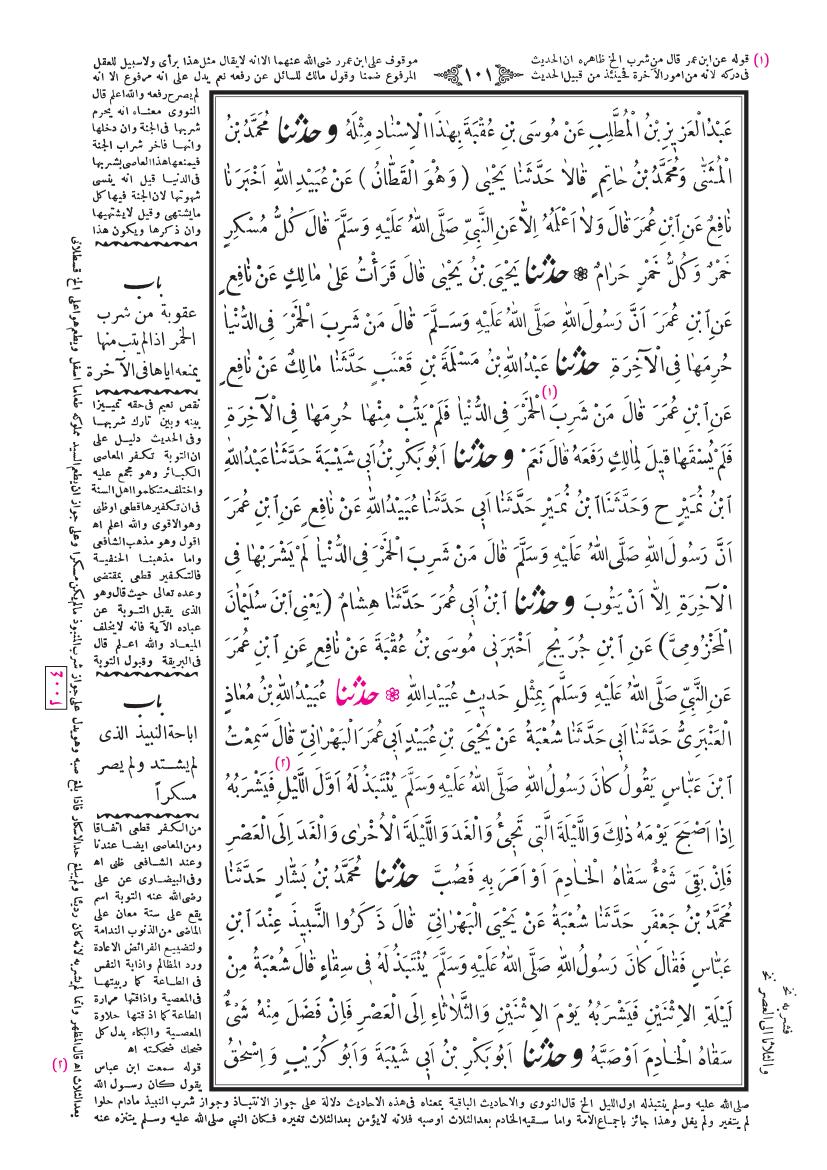 (١) قوله عن ابن عمر قال من شرب الخ ظاهره ان الحديث موقوف على ابن عمر رضى الله عنهما الا انه لايقال مثل هذا برأى ولا سبيل للعقل
فى دركه لانه من امور الآخرة فحينئذ من قبيل الحديث
١٠١
المرفوع ضمنا وقول مالك للسائل عن رفعه نعم يدل على انه مرفوع الا انه
عَبْدُ الْعَزِيزِ بْنُ الْمُطَّلِبِ عَنْ مُوسَى بْنِ عُقْبَةَ بِهٰذَا الْاِسْنَادِ مِثْلَهُ وحدثنا مُحَمَّدُ بْنُ
الْمُثَنّٰى وَمُحَمَّدُ بْنُ حَاتِمٍ قَالَا حَدَّثَنَا يَحْيٰى (وَهُوَ الْقَطَّانُ) عَنْ عُبَيْدِ اللّٰهِ اَخْبَرَنَا
نَافِعٌ عَنِ ابْنِ عُمَرَ قَالَ وَلَا اَعْلَمُهُ اِلَّا عَنِ النَّبِيِّ صَلَّى اللّٰهُ عَلَيْهِ وَسَلَّمَ قَالَ كُلُّ مُسْكِرٍ
خَمْرٌ وَكُلُّ خَمْرٍ حَرَامٌ ❁ حدثنا يَحْيَى بْنُ يَحْيٰى قَالَ قَرَأْتُ عَلىٰ مَالِكٍ عَنْ نَافِعٍ
عَنِ ابْنِ عُمَرَ اَنَّ رَسُولَ اللّٰهِ صَلَّى اللّٰهُ عَلَيْهِ وَسَلَّمَ قَالَ مَنْ شَرِبَ الْخَمْرَ فِى الدُّنْيَا
حُرِمَهَا فِى الْآخِرَةِ حدثنا عَبْدُ اللّٰهِ بْنُ مَسْلَمَةَ بْنِ قَعْنَبٍ حَدَّثَنَا مَالِكٌ عَنْ نَافِعٍ
عَنِ ابْنِ عُمَرَ قَالَ مَنْ شَرِبَ (١) الْخَمْرَ فِى الدُّنْيَا فَلَمْ يَتُبْ مِنْهَا حُرِمَهَا فِى الْآخِرَةِ
فَلَمْ يُسْقَهَا قِيلَ لِمَالِكٍ رَفَعَهُ قَالَ نَعَمْ وحدثنا اَبُو بَكْرِ بْنُ اَبِى شَيْبَةَ حَدَّثَنَا عَبْدُ اللّٰهِ
ابْنُ نُمَيْرٍ ح وَحَدَّثَنَا ابْنُ نُمَيْرٍ حَدَّثَنَا اَبِى حَدَّثَنَا عُبَيْدُ اللّٰهِ عَنْ نَافِعٍ عَنِ ابْنِ عُمَرَ
اَنَّ رَسُولَ اللّٰهِ صَلَّى اللّٰهُ عَلَيْهِ وَسَلَّمَ قَالَ مَنْ شَرِبَ الْخَمْرَ فِى الدُّنْيَا لَمْ يَشْرَبْهَا فِى
الْآخِرَةِ اِلَّا اَنْ يَتُوبَ وحدثنا ابْنُ اَبِى عُمَرَ حَدَّثَنَا هِشَامٌ (يَعْنِى ابْنَ سُلَيْمَانَ
الْمَخْزُومِىَّ) عَنِ ابْنِ جُرَيْجٍ اَخْبَرَنِى مُوسَى بْنُ عُقْبَةَ عَنْ نَافِعٍ عَنِ ابْنِ عُمَرَ
عَنِ النَّبِيِّ صَلَّى اللّٰهُ عَلَيْهِ وَسَلَّمَ بِمِثْلِ حَدِيثِ عُبَيْدِ اللّٰهِ ❁ حدثنا عُبَيْدُ اللّٰهِ بْنُ مُعَاذٍ
الْعَنْبَرِىُّ حَدَّثَنَا اَبِى حَدَّثَنَا شُعْبَةُ عَنْ يَحْيَى بْنِ عُبَيْدٍ اَبِى عُمَرَ الْبَهْرَانِىِّ قَالَ سَمِعْتُ
ابْنَ عَبَّاسٍ يَقُولُ كَانَ رَسُولُ اللّٰهِ صَلَّى اللّٰهُ عَلَيْهِ وَسَلَّمَ يُنْتَبَذُ لَهُ اَوَّلَ اللَّيْلِ (٢) فَيَشْرَبُهُ
اِذَا اَصْبَحَ يَوْمَهُ ذٰلِكَ وَاللَّيْلَةَ الَّتِى تَجِىءُ وَالْغَدَ وَاللَّيْلَةَ الْاُخْرٰى وَالْغَدَ اِلَى الْعَصْرِ
فَاِنْ بَقِىَ شَىْءٌ سَقَاهُ الْخَادِمَ اَوْ اَمَرَ بِهِ فَصُبَّ حدثنا مُحَمَّدُ بْنُ بَشَّارٍ حَدَّثَنَا
مُحَمَّدُ بْنُ جَعْفَرٍ حَدَّثَنَا شُعْبَةُ عَنْ يَحْيَى الْبَهْرَانِىِّ قَالَ ذَكَرُوا النَّبِيذَ عِنْدَ ابْنِ
عَبَّاسٍ فَقَالَ كَانَ رَسُولُ اللّٰهِ صَلَّى اللّٰهُ عَلَيْهِ وَسَلَّمَ يُنْتَبَذُ لَهُ فِى سِقَاءٍ قَالَ شُعْبَةُ مِنْ
لَيْلَةِ الْاِثْنَيْنِ فَيَشْرَبُهُ يَوْمَ الْاِثْنَيْنِ وَالثَّلَاثَاءِ اِلَى الْعَصْرِ فَاِنْ فَضَلَ مِنْهُ شَىْءٌ
سَقَاهُ الْخَادِمَ اَوْ صَبَّهُ وحدثنا اَبُو بَكْرِ بْنُ اَبِى شَيْبَةَ وَاَبُو كُرَيْبٍ وَاِسْحٰقُ
لم يصرح رفعه والله اعلم قال
النووى معناه انه يحرم
شربها فى الجنة وان دخلها
وانها فاخر شراب الجنة
فيمنعها هذا العاصى بشربها
فى الدنيا قيل انه ينسى
شهوتها لان الجنة فيها كل
ما يشتهى وقيل لا يشتهيها
وان ذكرها ويكون هذا
باب
عقوبة من شرب
الخمر اذا لم يتب منها
بمنعه اياها فى الآخرة
نقص نعيم فى حقه تمييزا
بينه وبين تارك شربها
وفى الحديث دليل على
ان التوبة تكفر المعاصى
الكبائر وهو مجمع عليه
واختلف متكلموا اهل السنة
فى ان تكفيرها قطعى او ظنى
وهو الاقوى والله اعلم اه
اقول وهو مذهب الشافعى
واما مذهبنا الحنفية
فالتكفير قطعى بمقتضى
وعده تعالى حيث قال وهو
الذى يقبل التوبة عن
عباده الآية فانه لا يخلف
الميعاد والله اعلم قال
فى البريقة وقبول التوبة
٢٠٠٤
باب
اباحة النبيذ الذى
لم يشتد ولم يصر
مسكراً
من الكفر قطعى اتفاقا
ومن المعاصى ايضا عندنا
وعند الشافعى ظنى اه
وفى البيضاوى عن على
رضى الله عنه التوبة اسم
يقع على ستة معان على
الماضى من الذنوب الندامة
ولتضييع الفرائض الاعادة
ورد المظالم واذابة النفس
فى الطاعة كما ربيتها
فى المعصية واذاقتها مرارة
الطاعة كما اذقتها حلاوة
المعصية والبكاء بدل كل
ضحك ضحكته اه
(٢) قوله سمعت ابن عباس
يقول كان رسول الله
صلى الله عليه وسلم ينتبذ له اول الليل الخ قال النووى والاحاديث الباقية بمعناه فى هذه الاحاديث دلالة على جواز الانتباذ وجواز شرب النبيذ مادام حلوا
لم يتغير ولم يغل وهذا جائز باجماع الامة واما سقيه الخادم بعد الثلاث اوصبه فلانه لا يؤمن بعد الثلاث تغيره فكان النبى صلى الله عليه وسلم يتنزه عنه
فشربه نخ
والثلاثا الى العصر نخ